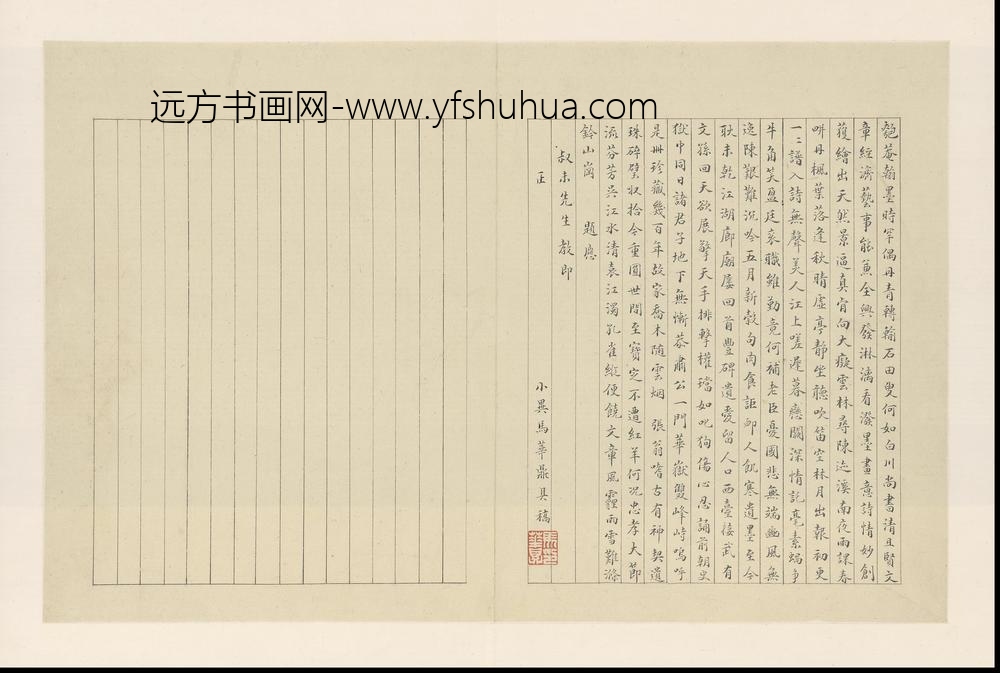 远方书画网-www.yfshuhua.com
匏菴翰墨時罕偶丹青轉輸石田叟何如白川尚書清且賢文
章經濟藝事能兼全興發淋漓看潑墨畫意詩情妙創
獲繪出天然景逼真肯向大癡雲林尋陳迹溪南夜雨課春
畊丹楓葉落逢秋晴虛亭靜坐聽吹笛空林月出報初更
一二譜入詩無聲美人江上嗟遲暮戀闕深情託毫素蝸爭
牛角笑盈廷袞職雖勤竟何補老臣憂國悲無端豳風無
逸陳艱難沉吟五月新穀句肉食詎卹人飢寒遺墨至今
耿未乾江湖廊廟屢回首豐碑遺愛留人口西臺接武有
文孫回天欲展擎天手排擊權璫如叱狗傷心忍誦前朝史
獄中同日諸君子地下無慚恭肅公一門華嶽雙峰峙嗚呼
是冊珍藏幾百年故家喬木隨雲烟張翁嗜古有神契遺
珠碎璧收拾今重圓世間至寶定不遭紅羊何況忠孝大節
流芬芳吳江水清袁江濁孔雀縱使饒文章風霾雨雪難滌
鈐山崗 題應
叔未先生教即
正
小異馬華鼎具稿